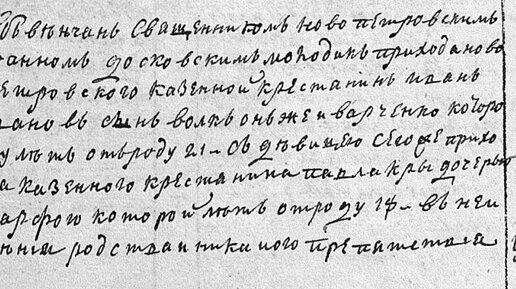 вѣнчанъ Священникомъ новопетровскимъ
анномъ до сковскимъ молодикъ прихода ново
етровского казенной крестанинъ иванъ
вановъ сынъ волковъ онъ же и варченко которо
у лѣтъ отъ роду 21 - съ дѣвицею сегоже прихо
а казенного крестанина павла крыдочерью
марфою которой лѣтъ отроду 18 - въ неи
ѣніи родства и никакого препятствія